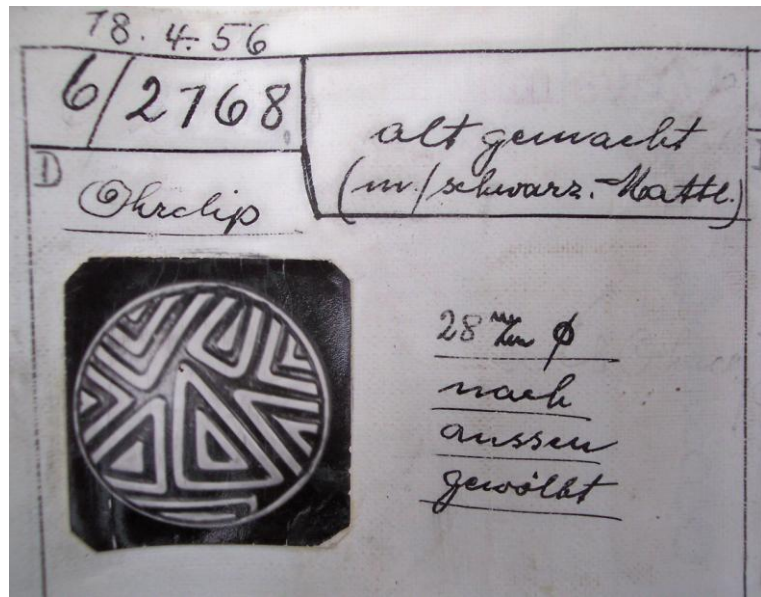 18.4.56
6/2768
alt gemacht
(m./schwarz. Mattl.)
D
Ohrclip
28 m/m ϕ
nach
aussen
gewölbt